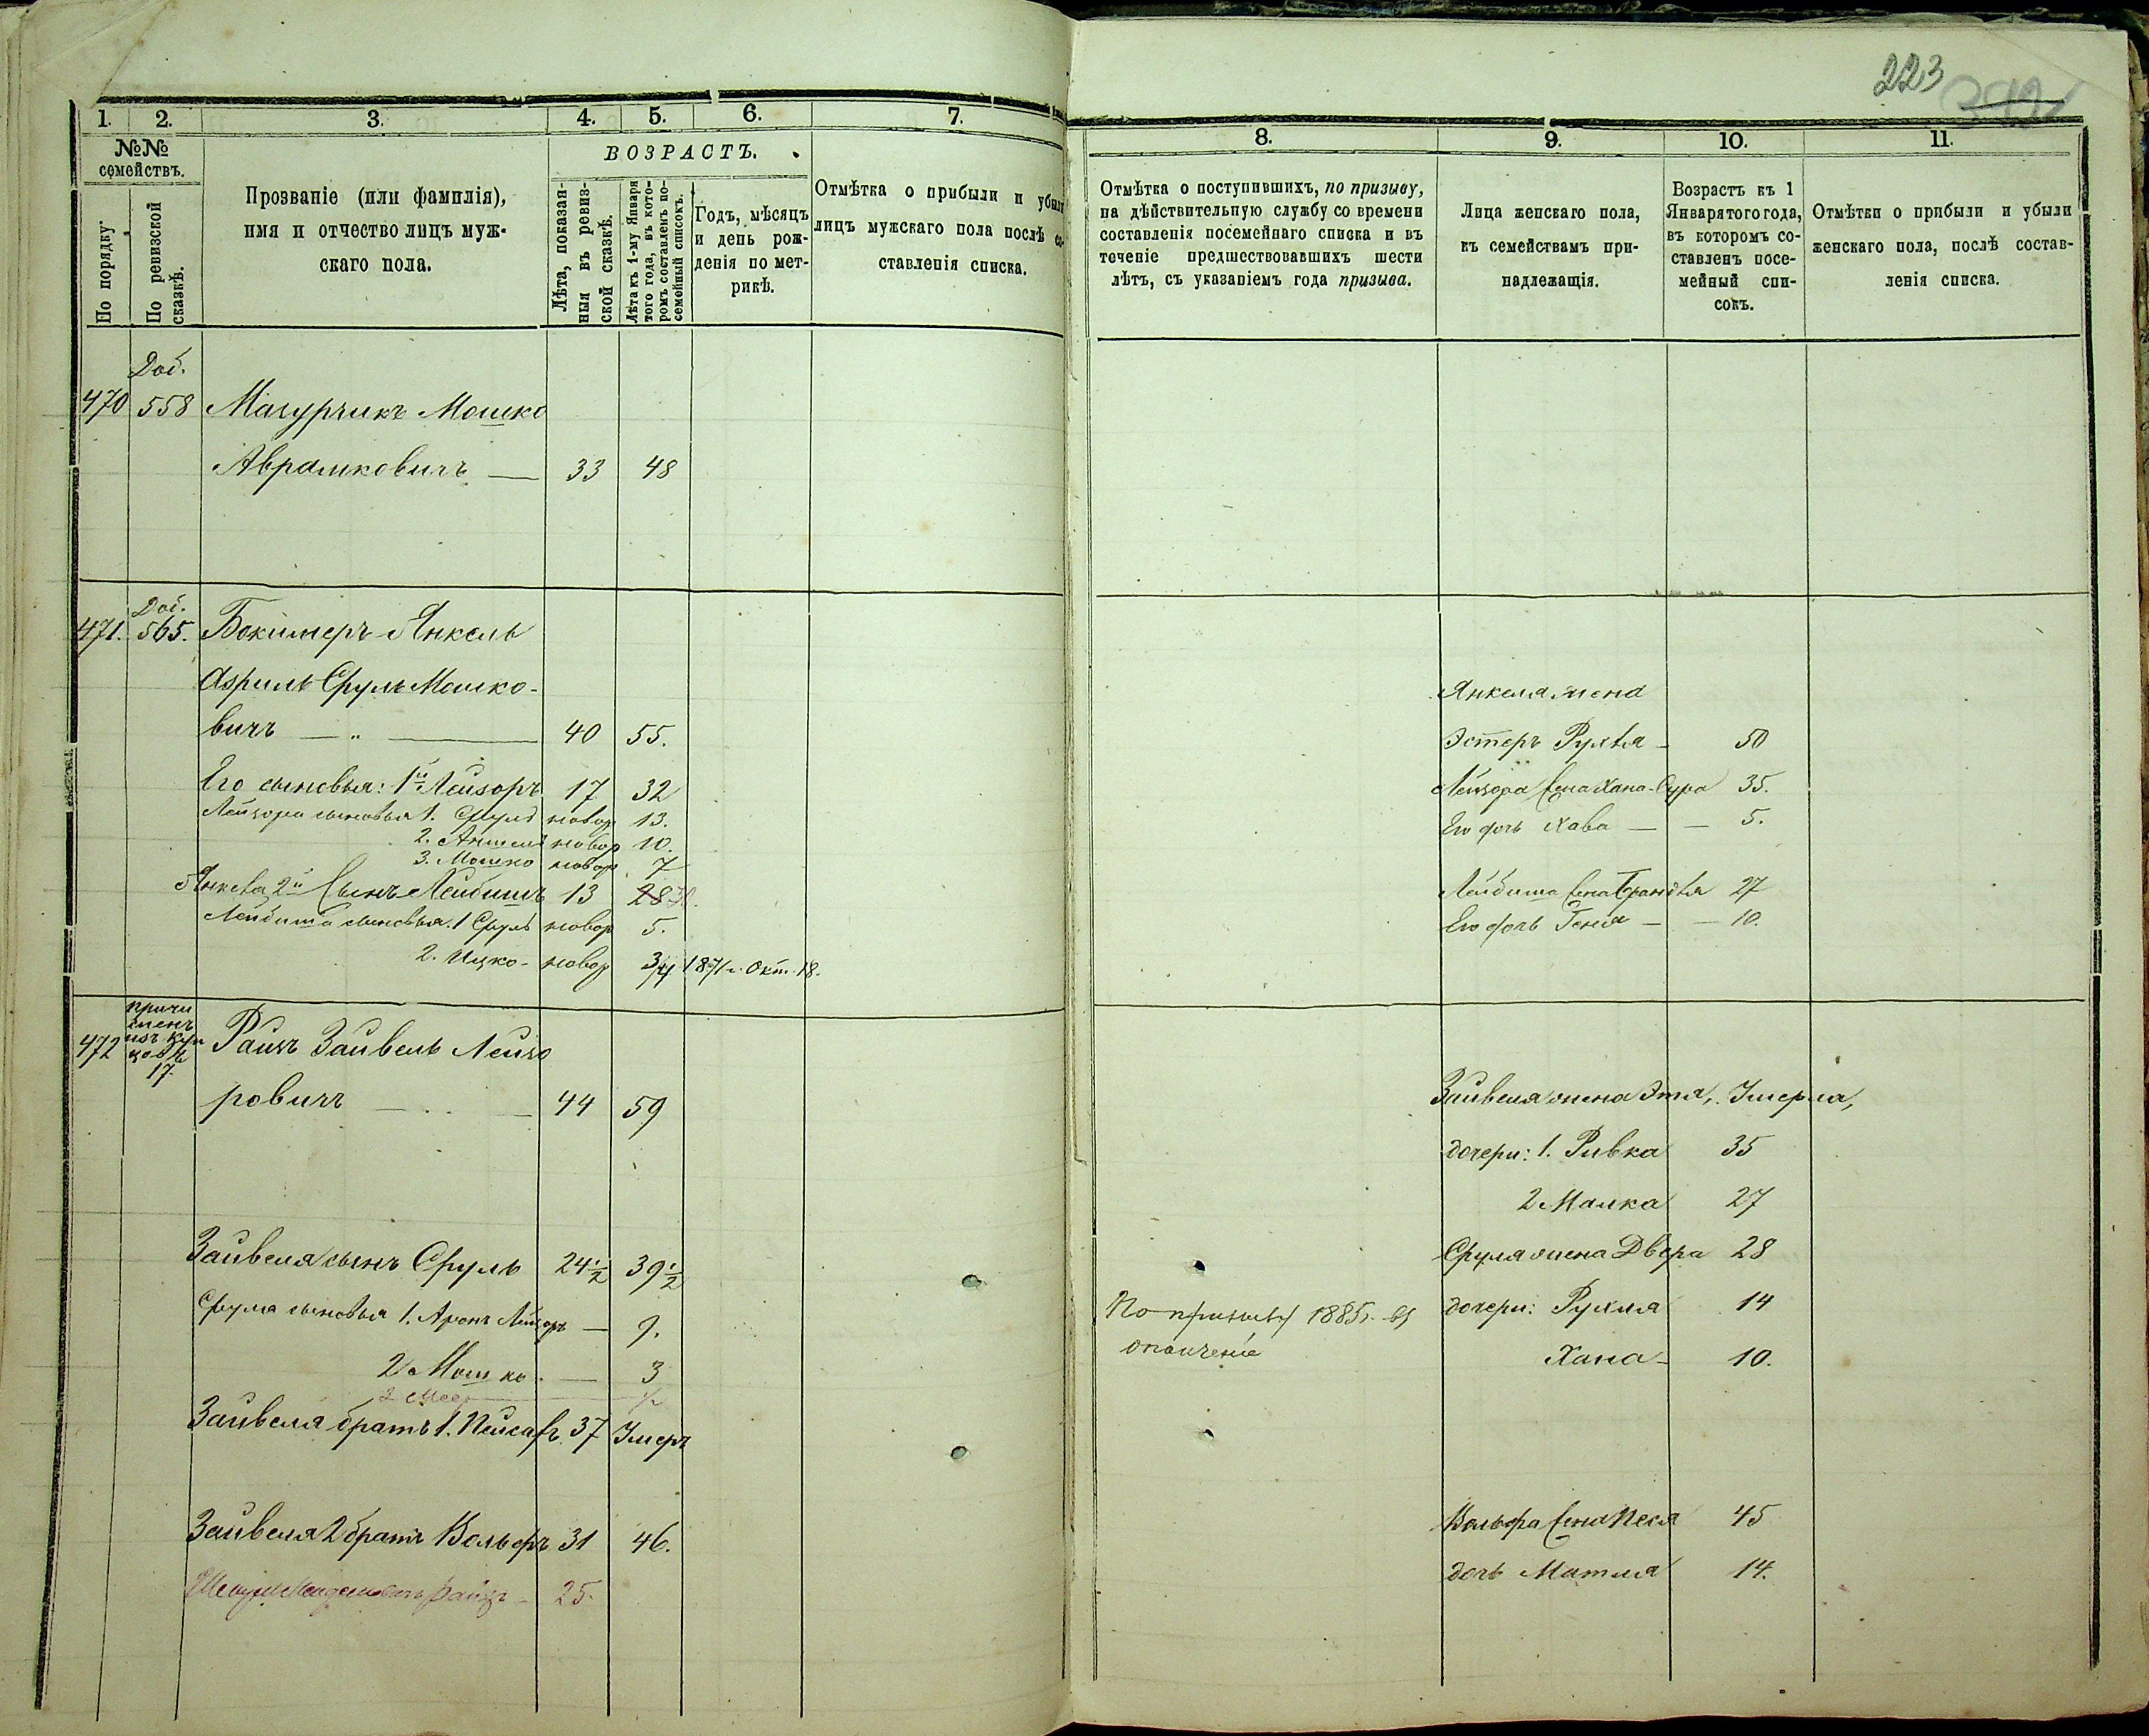 223
1.
2.
3.
4.
5.
6.
7.
8.
9.
10.
11.
№№
семействъ.
По порядку.
По ревизской
сказкѣ.
Прозваніе (или фамилія),
имя и отчество лицъ муж-
скаго пола.
ВОЗРАСТЪ.
Лѣта, показан-
ныя въ ревиз-
ской сказкѣ.
Лѣта къ 1-му Января
того года, въ кото-
ромъ составленъ по-
семейный списокъ.
Годъ, мѣсяцъ
и день рож-
денія по мет-
рикѣ.
Отмѣтка о прибыли и убыли
лицъ мужскаго пола послѣ со-
ставленія списка.
Отмѣтка о поступившихъ, по призыву,
на дѣйствительную службу со времени
составленія посемейнаго списка и въ
теченіе предшествовавшихъ шести
лѣтъ, съ указаніемъ года призыва.
Лица женскаго пола,
къ семействамъ при-
надлежащія.
Возрастъ къ 1
Января того года,
въ которомъ со-
ставленъ посе-
мейный спи-
сокъ.
Отмѣтки о прибыли и убыли
женскаго пола, послѣ состав-
ленія списка.
Доб.
470 558 Мазурчикъ Мошко
Аврамковичъ — 33 48
Доб.
471. 565. Бокимеръ Янкель
Азриль Сруль Мошко-
вичъ — 40 55.
Его сыновья: 1й Лейзоръ 17 32
Лейзора сыновья 1. Сруль новор 13.
2. Аншель новор 10.
3. Мошко новор 7
Янкеля 2й Сынъ Лейбишъ 13 28
Лейбиша сыновья 1 Сруль новор 5.
2. Ицко - новор 3/4 1871 г. Окт. 18.
Янкеля жена
Эстеръ Рухля - 50
Лейзора жена Хана-Сура 35.
Его дочь Хава — 5.
Лейбиша жена 27
Его дочь Геня — 10.
причи
сленъ
изъ куп
цовъ №
17.
472 Райзъ Зайвель Лейзо
ровичъ — 44 59
Зайвеля сынъ Сруль 24 1/2 39 1/2
Сруля сыновья 1. Аронъ Лейзоръ — 9.
2 Мошко — 3
Зайвеля братъ 1. Пейсахъ 37 Умеръ
Зайвеля 2 братъ Вольфъ 31 46.
25.
По призыву 1885 г. въ
ополченіе
Зайвеля жена Этя, Умерла,
дочери: 1. Ривка 35
2 Малка 27
Сруля жена Двера 28
дочери: Рухля 14
Хана - 10.
Вольфа жена Песя 45
дочь Матля 14.